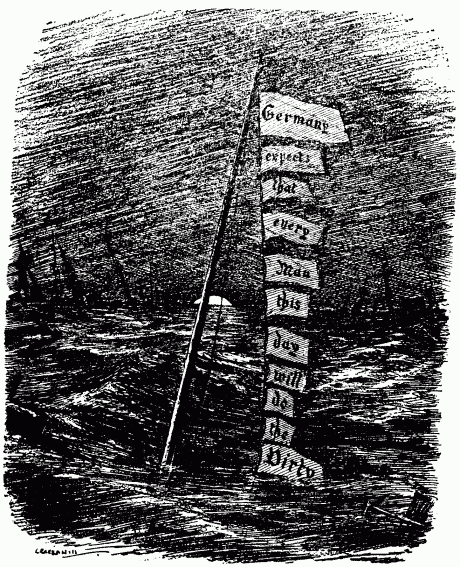 Germany
expects
that
every
Man
this
day
will
do
the
Dirty